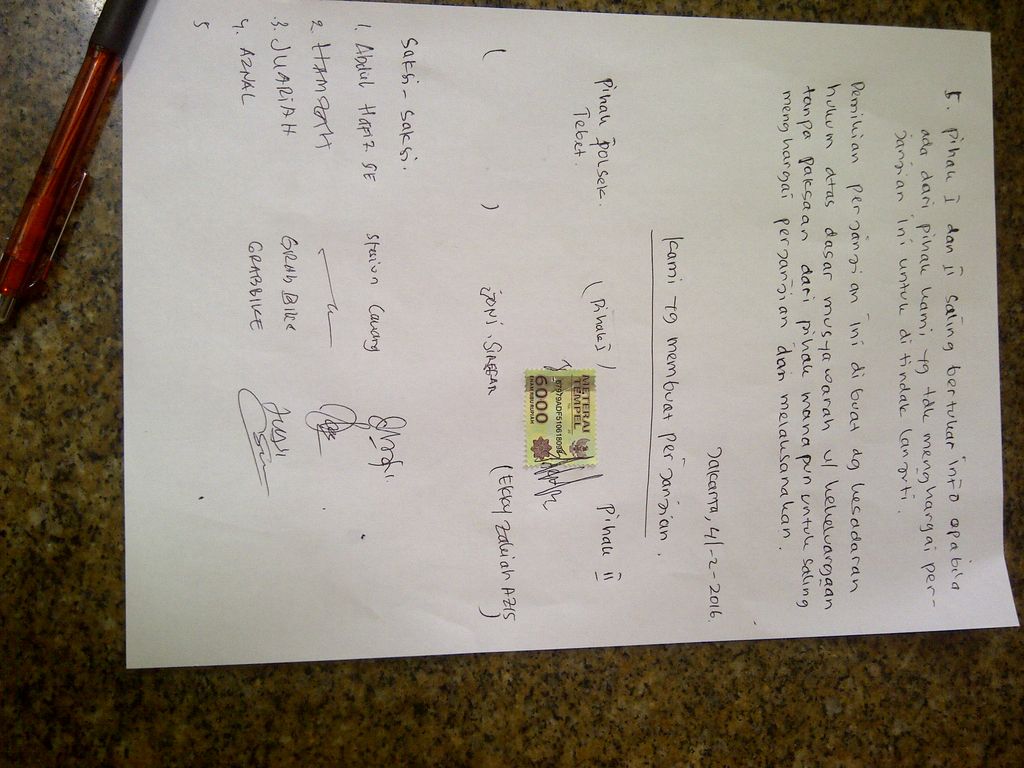 5. Pihak I dan II saling bertukar info apabila
ada dari pihak kami yg tak menghargai per-
janjian ini untuk di tindak lanjuti.
Demikian perjanjian ini dibuat dg kesadaran
hukum atas dasar musyawarah u/ kekeluargaan
tanpa paksaan dari pihak mana pun untuk saling
menghargai perjanjian dan melaksanakan.
Jakarta, 4/-2-2016.
Kami yg membuat perjanjian.
Pihak Polsek. (Pihak I) Pihak II
Tebet.
METERAI
TEMPEL
6000
( ) JONI. SIREGAR (EKKY Zakiah AZIS)
Saksi-saksi.
1. Abdul Hafiz SE Stasiun Cawang
2. HAMZAH
3. JUARIAH GRAB BIKE
4. AZNAL GRABBIKE
5